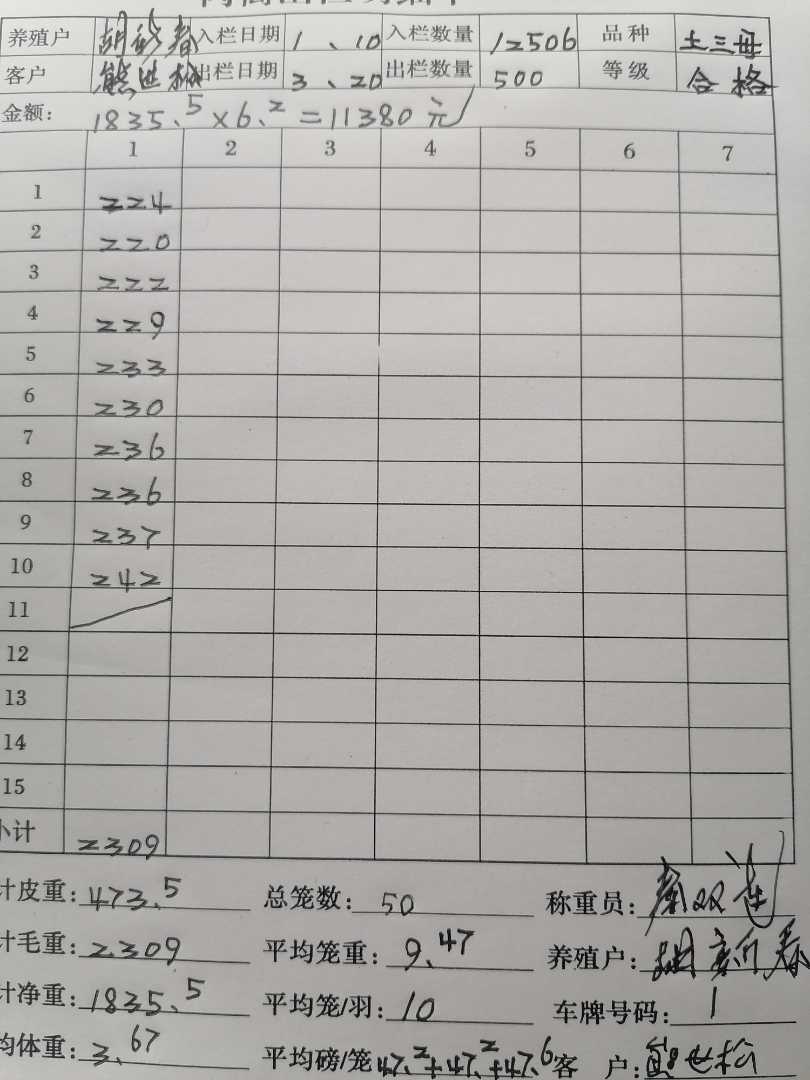 养殖户 胡新春 入栏日期 1、10 入栏数量 12506 品种 土三母
客户 熊世松 出栏日期 3、20 出栏数量 500 等级 合格
金额: 1835.5×6.2=11380元
1 2 3 4 5 6 7
1 224
2 220
3 222
4 229
5 233
6 230
7 236
8 236
9 237
10 242
11
12
13
14
15
小计 2309
计皮重: 473.5 总笼数: 50 称重员: 秦双莲
计毛重: 2309 平均笼重: 9.47 养殖户: 胡新春
计净重: 1835.5 平均笼/羽: 10 车牌号码: 1
均体重: 3.67 平均磅/笼 47.2+47.2+47.6 客 户: 熊世松